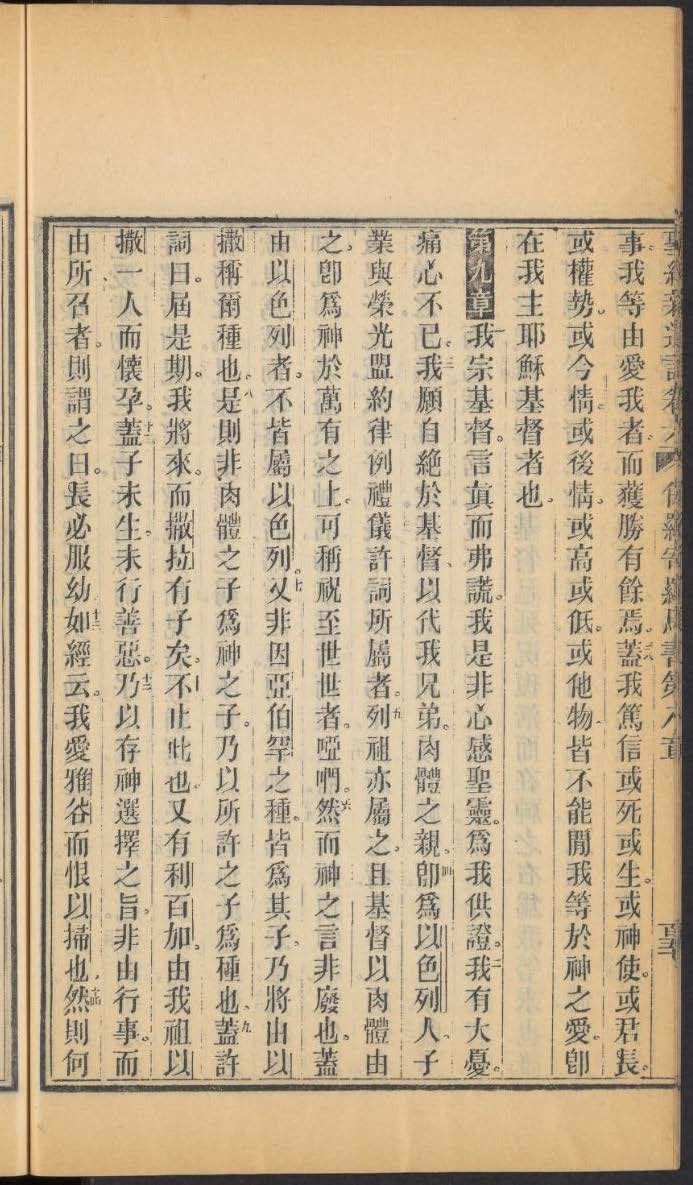 事我等由愛我者而獲勝有餘焉三八蓋我篤信或死或生或神使或君長
或權勢或今情或後情或高或低或他物皆不能間我等於神之愛卽
在我主耶穌基督者也
第九章一我宗基督言眞而弗謊我是非心感聖靈爲我供證二我有大憂
痛心不已三我願自絕於基督以代我兄弟肉體之親四卽爲以色列人子
業與榮光盟約律例禮儀許詞所屬者五列祖亦屬之且基督以肉體由
之卽爲神於萬有之上可稱祝至世世者啞們六然而神之言非廢也蓋
由以色列者不皆屬以色列七又非因亞伯罕之種皆爲其子乃將由以
撒稱爾種也八是則非肉體之子爲神之子乃以所許之子爲種也九蓋許
詞曰屆是期我將來而撒拉有子矣十不止此也又有利百加由我祖以
撒一人而懷孕十一蓋子未生未行善惡乃十二以存神選擇之旨非由行事而
由所召者則謂之曰長必服幼十三如經云我愛雅谷而恨以掃也十四然則何